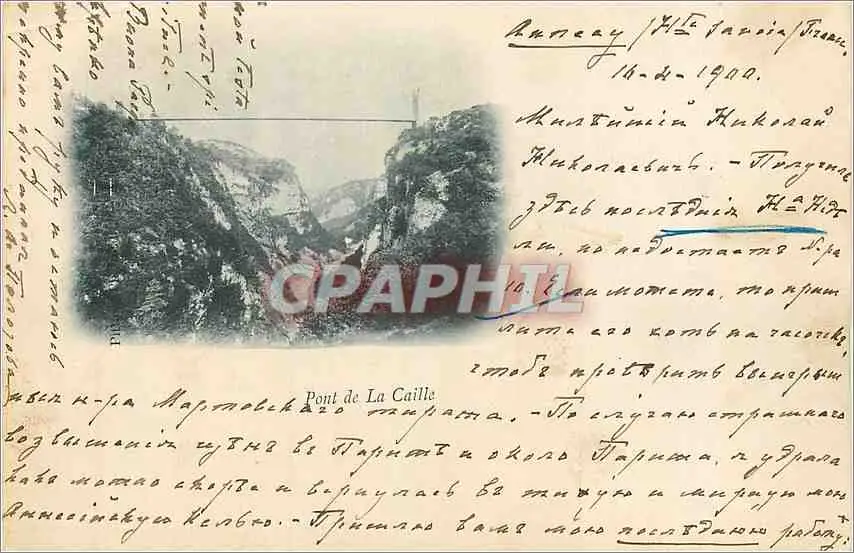 Аннеси /Hte Savoie/ Franc.
14-4-1900.
Милѣйшій Николай
Николаевичъ. - Получила
здѣсь послѣднія На Недѣ
ли, но недостаетъ №ра
10. Если можете, то приш
лите его хоть на часочекъ,
чтобъ провѣрить выигрыш
ныя н-ра Мартовскаго тиража. - По случаю страшнаго
возвышенія цѣнъ въ Парижѣ и около Парижа, я удрала
какъ можно скорѣе и вернулась въ тихую и мирную мою
Аннесійскую келью. - Пришлю вамъ мою послѣднюю работу:
Pont de La Caille
CARAPHIL
жму вамъ руку
искренно преданная